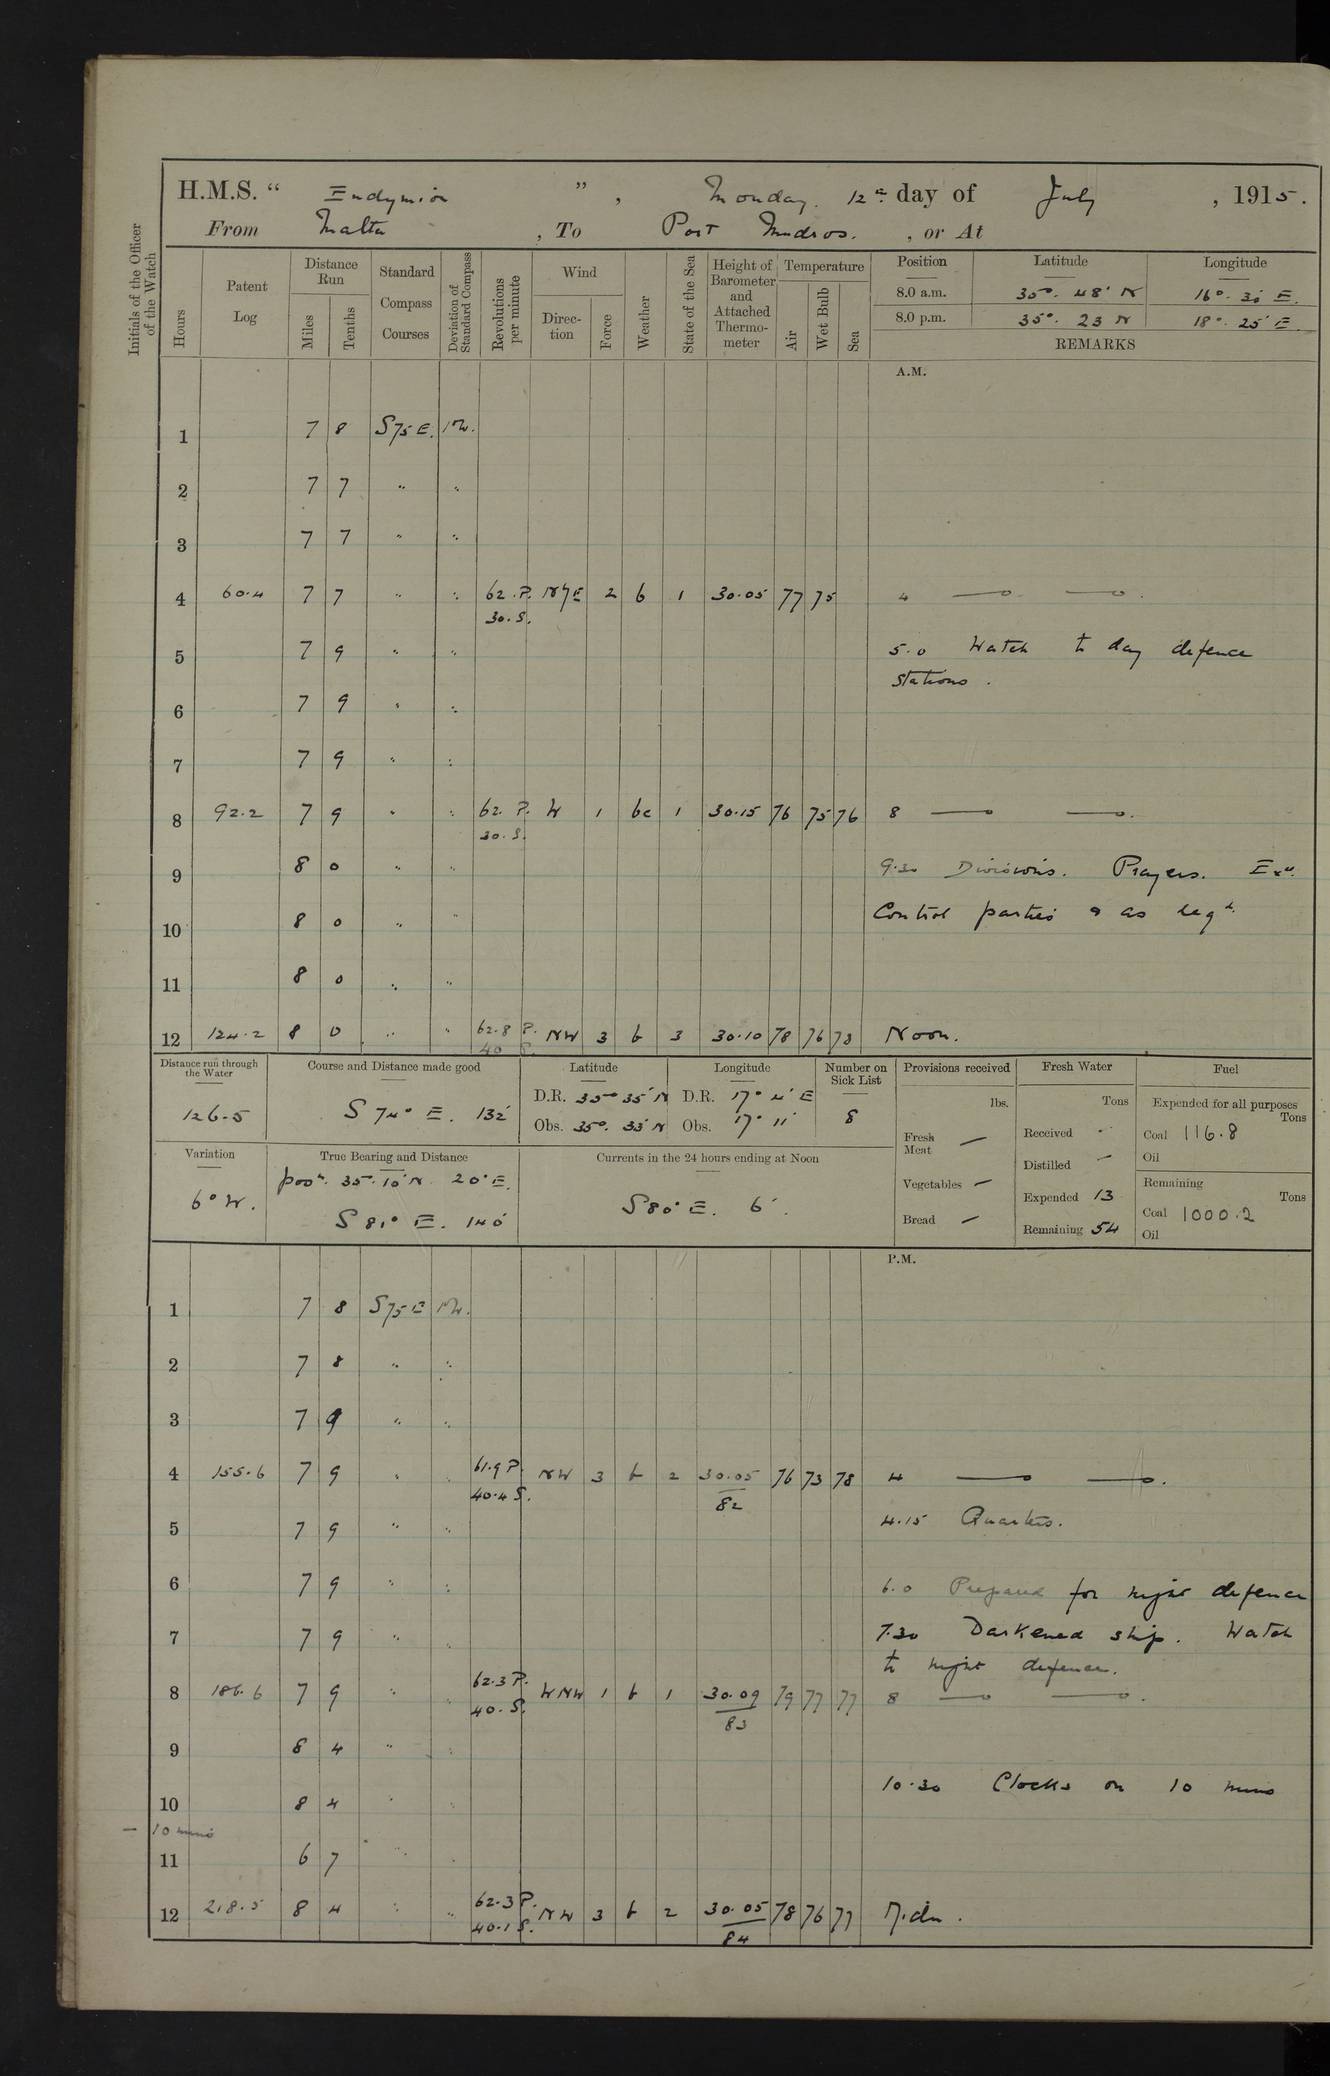 H.M.S. “ Endymion ” , Monday. 12th day of July , 1915.
From Malta , To Port Mudros. , or At
Initials of the Officer of the Watch
Hours Patent Log Distance Run Miles Tenths Standard Compass Courses Deviation of Standard Compass Revolutions per minute Wind Direction Force Weather State of the Sea Height of Barometer and Attached Thermometer Temperature Air Wet Bulb Sea
Position Latitude Longitude
8.0 a.m. 35°. 48' N 16°. 30' E.
8.0 p.m. 35°. 23 N 18°. 25' E.
REMARKS
A.M.
1 7 8 S75E. 1°W.
2 7 7 " "
3 7 7 " "
4 60.4 7 7 " " 62. P. NbyE 2 b 1 30.05 77 75 4 — —
30. S.
5 7 9 " " 5.0 Watch to day defence
stations.
6 7 9 " "
7 7 9 " "
8 92.2 7 9 " " 62. P. W 1 bc 1 30.15 76 75 76 8 — —.
30. S.
9 8 0 " " 9.30 Divisions. Prayers. Exd.
10 8 0 " " Control parties & as reqd.
11 8 0 " "
12 124.2 8 0 " " 62.8 P. NW 3 b 3 30.10 78 76 78 Noon.
40 S.
Distance run through the Water
126.5
Course and Distance made good
S 74° E. 132'
Latitude
D.R. 35° 35' N
Obs. 35°. 33' N
Longitude
D.R. 17° 4' E
Obs. 17° 11'
Number on Sick List
8
Provisions received
lbs.
Fresh Meat —
Vegetables —
Bread —
Fresh Water
Tons
Received -
Distilled —
Expended 13
Remaining 54
Fuel
Expended for all purposes
Tons
Coal 116.8
Oil
Remaining
Tons
Coal 1000.2
Oil
Variation
6° W.
True Bearing and Distance
posn. 35°. 10' N 20° E.
S 81° E. 140'
Currents in the 24 hours ending at Noon
S 80° E. 6'.
P.M.
1 7 8 S75E 1°W.
2 7 8 " "
3 7 9 " "
4 155.6 7 9 " " 61.9 P. NW 3 b 2 30.05 76 73 78 4 — —.
40.4 S. 82
5 7 9 " " 4.15 Quarters.
6 7 9 " " 6.0 Prepared for night defence
7 7 9 " " 7.30 Darkened ship. Watch
to night defence.
8 186.6 7 9 " " 62.3 P. WNW 1 b 1 30.09 79 77 77 8 — —.
40. S. 83
9 8 4 " "
10.30 Clocks on 10 mins
10 8 4 " "
— 10 mins
11 6 7 " "
12 218.5 8 4 " " 62.3 P. NW 3 b 2 30.05 78 76 77 Midn.
40.1 S. 84